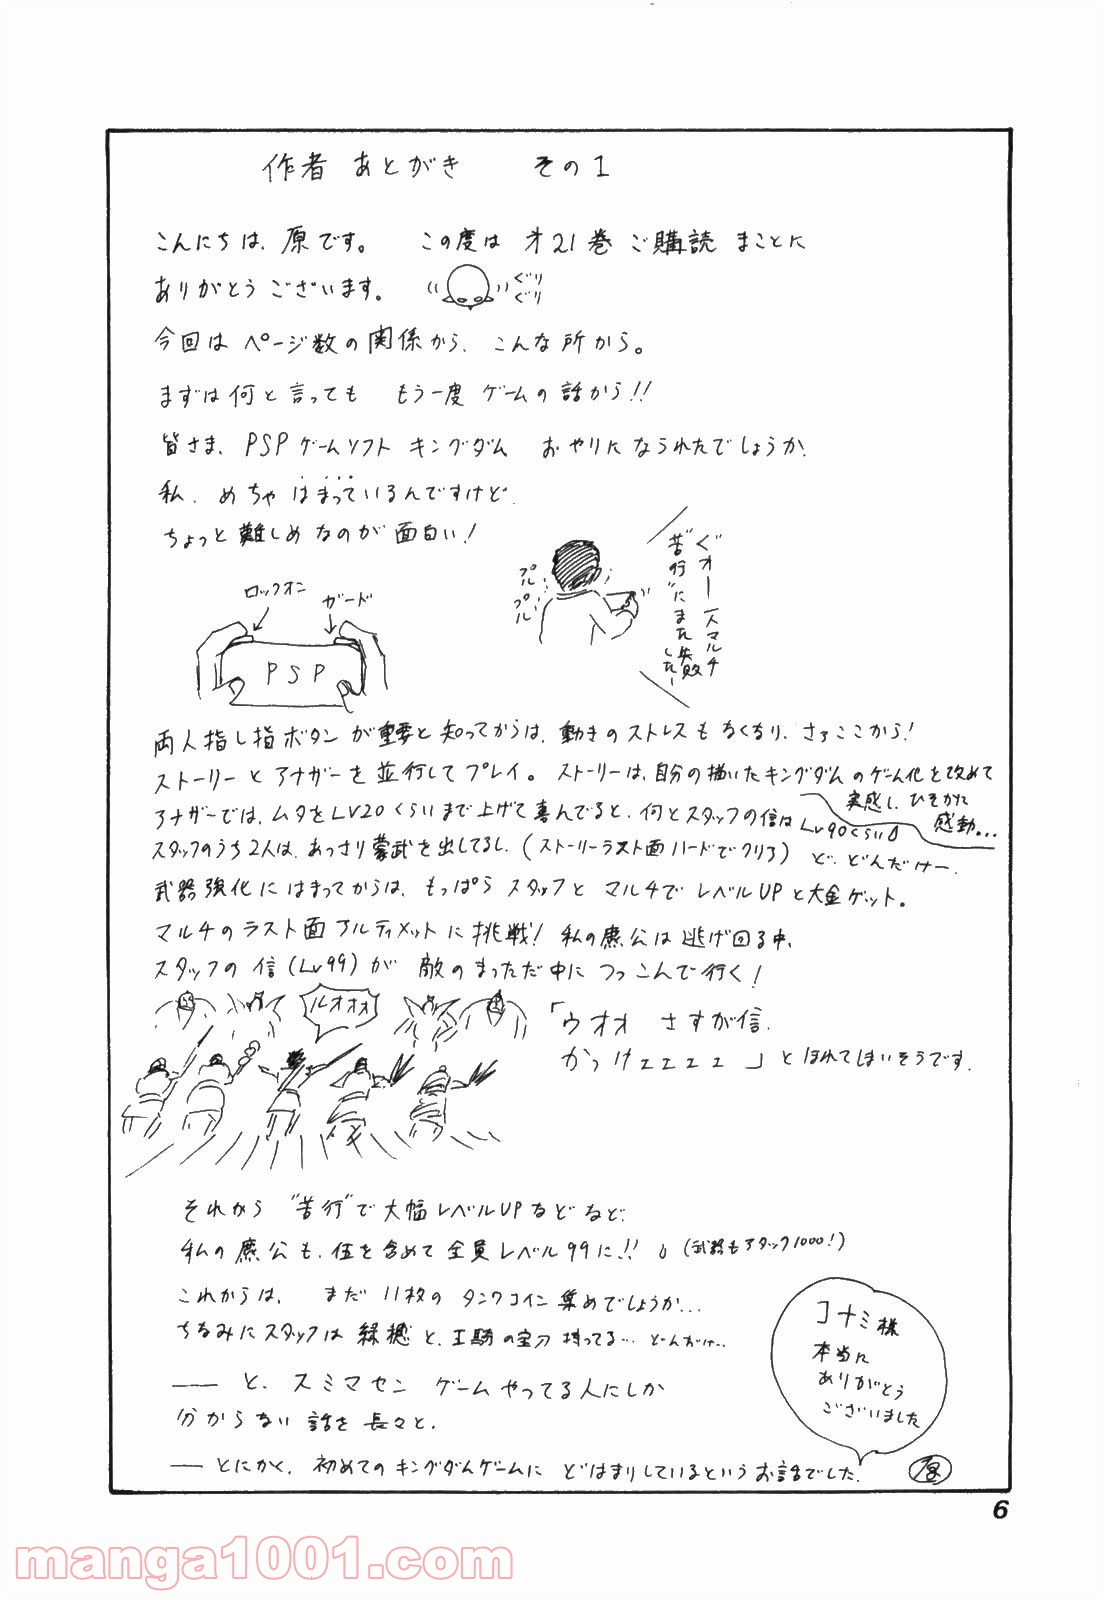 作者 あとがき その1
こんにちは、原です。 この度は 才21巻 ご購読 まことに
ありがとうございます。
ぐりぐり
今回は ページ数の関係から、こんな所から。
まずは何と言っても もう一度 ゲームの話から!!
皆さま、PSPゲームソフト キングダム おやりになられたでしょうか。
私、めちゃ はまっているんですけど、
ちょっと難しめなのが面白い!
ロックオン
ガード
PSP
プルプル
ぐオー マルチ
"苦行"にまた失敗
した—
両人指し指ボタンが重要と知ってからは、動きのストレスもなくなり、さァここから!
ストーリーとアナザーを並行してプレイ。ストーリーは、自分の描いたキングダムのゲーム化を改めて
実感し、ひそかに
感動…
アナザーでは、ムタをLv20くらいまで上げて喜んでると、何とスタッフの信はLv90くらい
スタッフのうち2人は、あっさり蒙武を出してるし、(ストーリーラスト面ハードでクリア) ど、どんだけー、
武器強化にはまってからは、もっぱら スタッフと マルチで レベルUPと大金ゲット。
マルチのラスト面アルティメットに挑戦! 私の廉公は逃げ回る中、
スタッフの 信(Lv99)が 敵のまっただ中に つっこんで行く!
ルオオオ
「ウオオ さすが信、
かっけェェェェ」とほれてしまいそうです。
それから "苦行"で大幅レベルUPなどなど、
私の廉公も、伍を含めて全員レベル99に!! (武器もアタック1000!)
これからは、 まだ11枚の タンワコイン集めでしょうか…
ちなみにスタッフは 緑穂と、王騎の宝刀 持ってる… どんだけ…
—— と、スミマセン ゲームやってる人にしか
分からない 話を 長々と、
—— とにかく、初めてのキングダムゲームに どはまりしているというお話でした。
コナミ様
本当に
ありがとう
ございました
原
6
manga1001.com